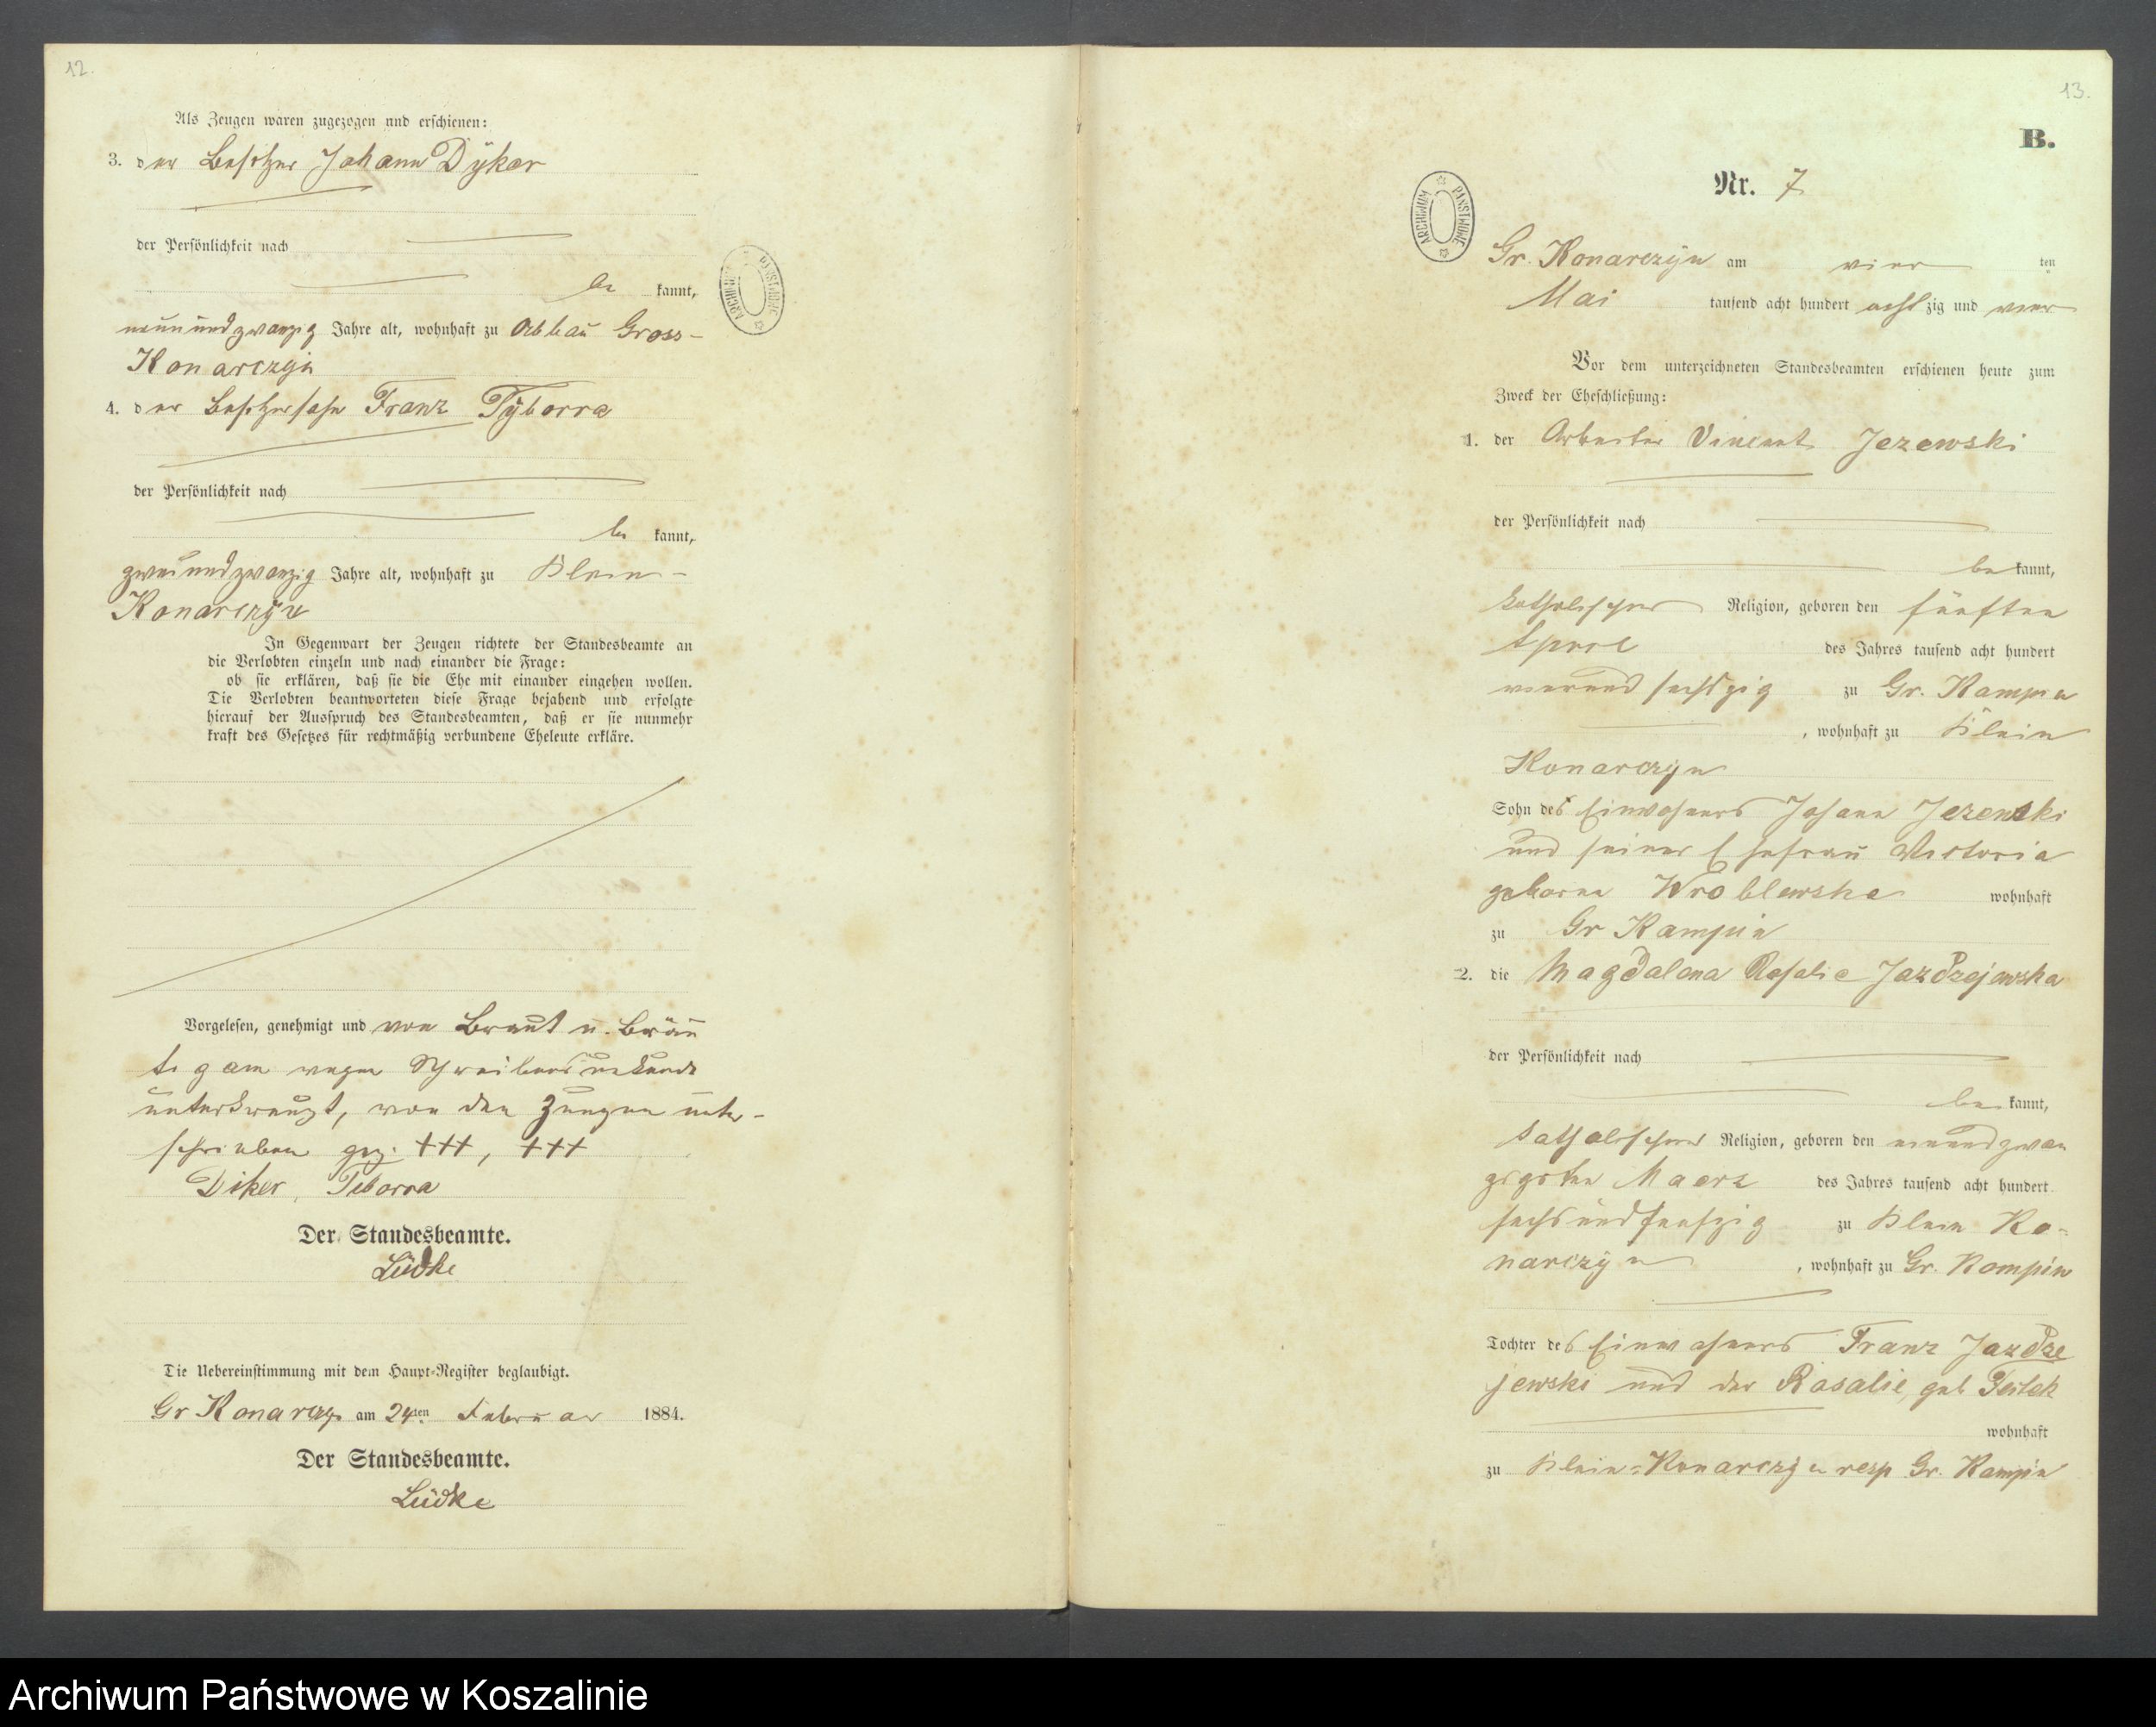 12.
Als Zeugen waren zugezogen und erschienen:
3. der Besitzer Johann Dÿker
der Persönlichkeit nach
be kannt,
neunundzwanzig Jahre alt, wohnhaft zu Abbau Gross-
Konarczyn
4. der Besitzersohn Franz Tÿborra
der Persönlichkeit nach
be kannt,
zweiundzwanzig Jahre alt, wohnhaft zu Klein-
Konarczyn
In Gegenwart der Zeugen richtete der Standesbeamte an
die Verlobten einzeln und nach einander die Frage:
ob sie erklären, daß sie die Ehe mit einander eingehen wollen.
Die Verlobten beantworteten diese Frage bejahend und erfolgte
hierauf der Ausspruch des Standesbeamten, daß er sie nunmehr
kraft des Gesetzes für rechtmäßig verbundene Eheleute erkläre.
Vorgelesen, genehmigt und von Braut u. Bräu
tigam wegen Schreibensunkunde
unterkreuzt, von den Zeugen unter-
schrieben gez. +++, +++
Diker, Tiborra
Der Standesbeamte.
Lüdke
Die Uebereinstimmung mit dem Haupt-Register beglaubigt.
Gr Konarczyn am 24ten Februar 1884.
Der Standesbeamte.
Lüdke
ARCHIWUM PAŃSTWOWE
13.
B.
ARCHIWUM PAŃSTWOWE
Nr. 7
Gr. Konarczyn am vier ten
Mai tausend acht hundert acht zig und vier
Vor dem unterzeichneten Standesbeamten erschienen heute zum
Zweck der Eheschließung:
1. der Arbeiter Vincent Jezewski
der Persönlichkeit nach
be kannt,
katholischer Religion, geboren den fünften
April des Jahres tausend acht hundert
vierundsechszig zu Gr. Kampin
, wohnhaft zu Klein
Konarczyn
Sohn des Einwohners Johann Jezewski
und seiner Ehefrau Victoria
geborne Wroblewska wohnhaft
zu Gr Kampin
2. die Magdalena Rosalie Jazdzejewska
der Persönlichkeit nach
be kannt,
katholischer Religion, geboren den einundzwan
zigsten Maerz des Jahres tausend acht hundert
sechsundfünfzig zu Klein Ko-
narczyn , wohnhaft zu Gr. Kampin
Tochter des Einwohners Franz Jazdze
jewski und der Rosalie, geb
wohnhaft
zu Klein-Konarczyn resp Gr. Kampin
Archiwum Państwowe w Koszalinie